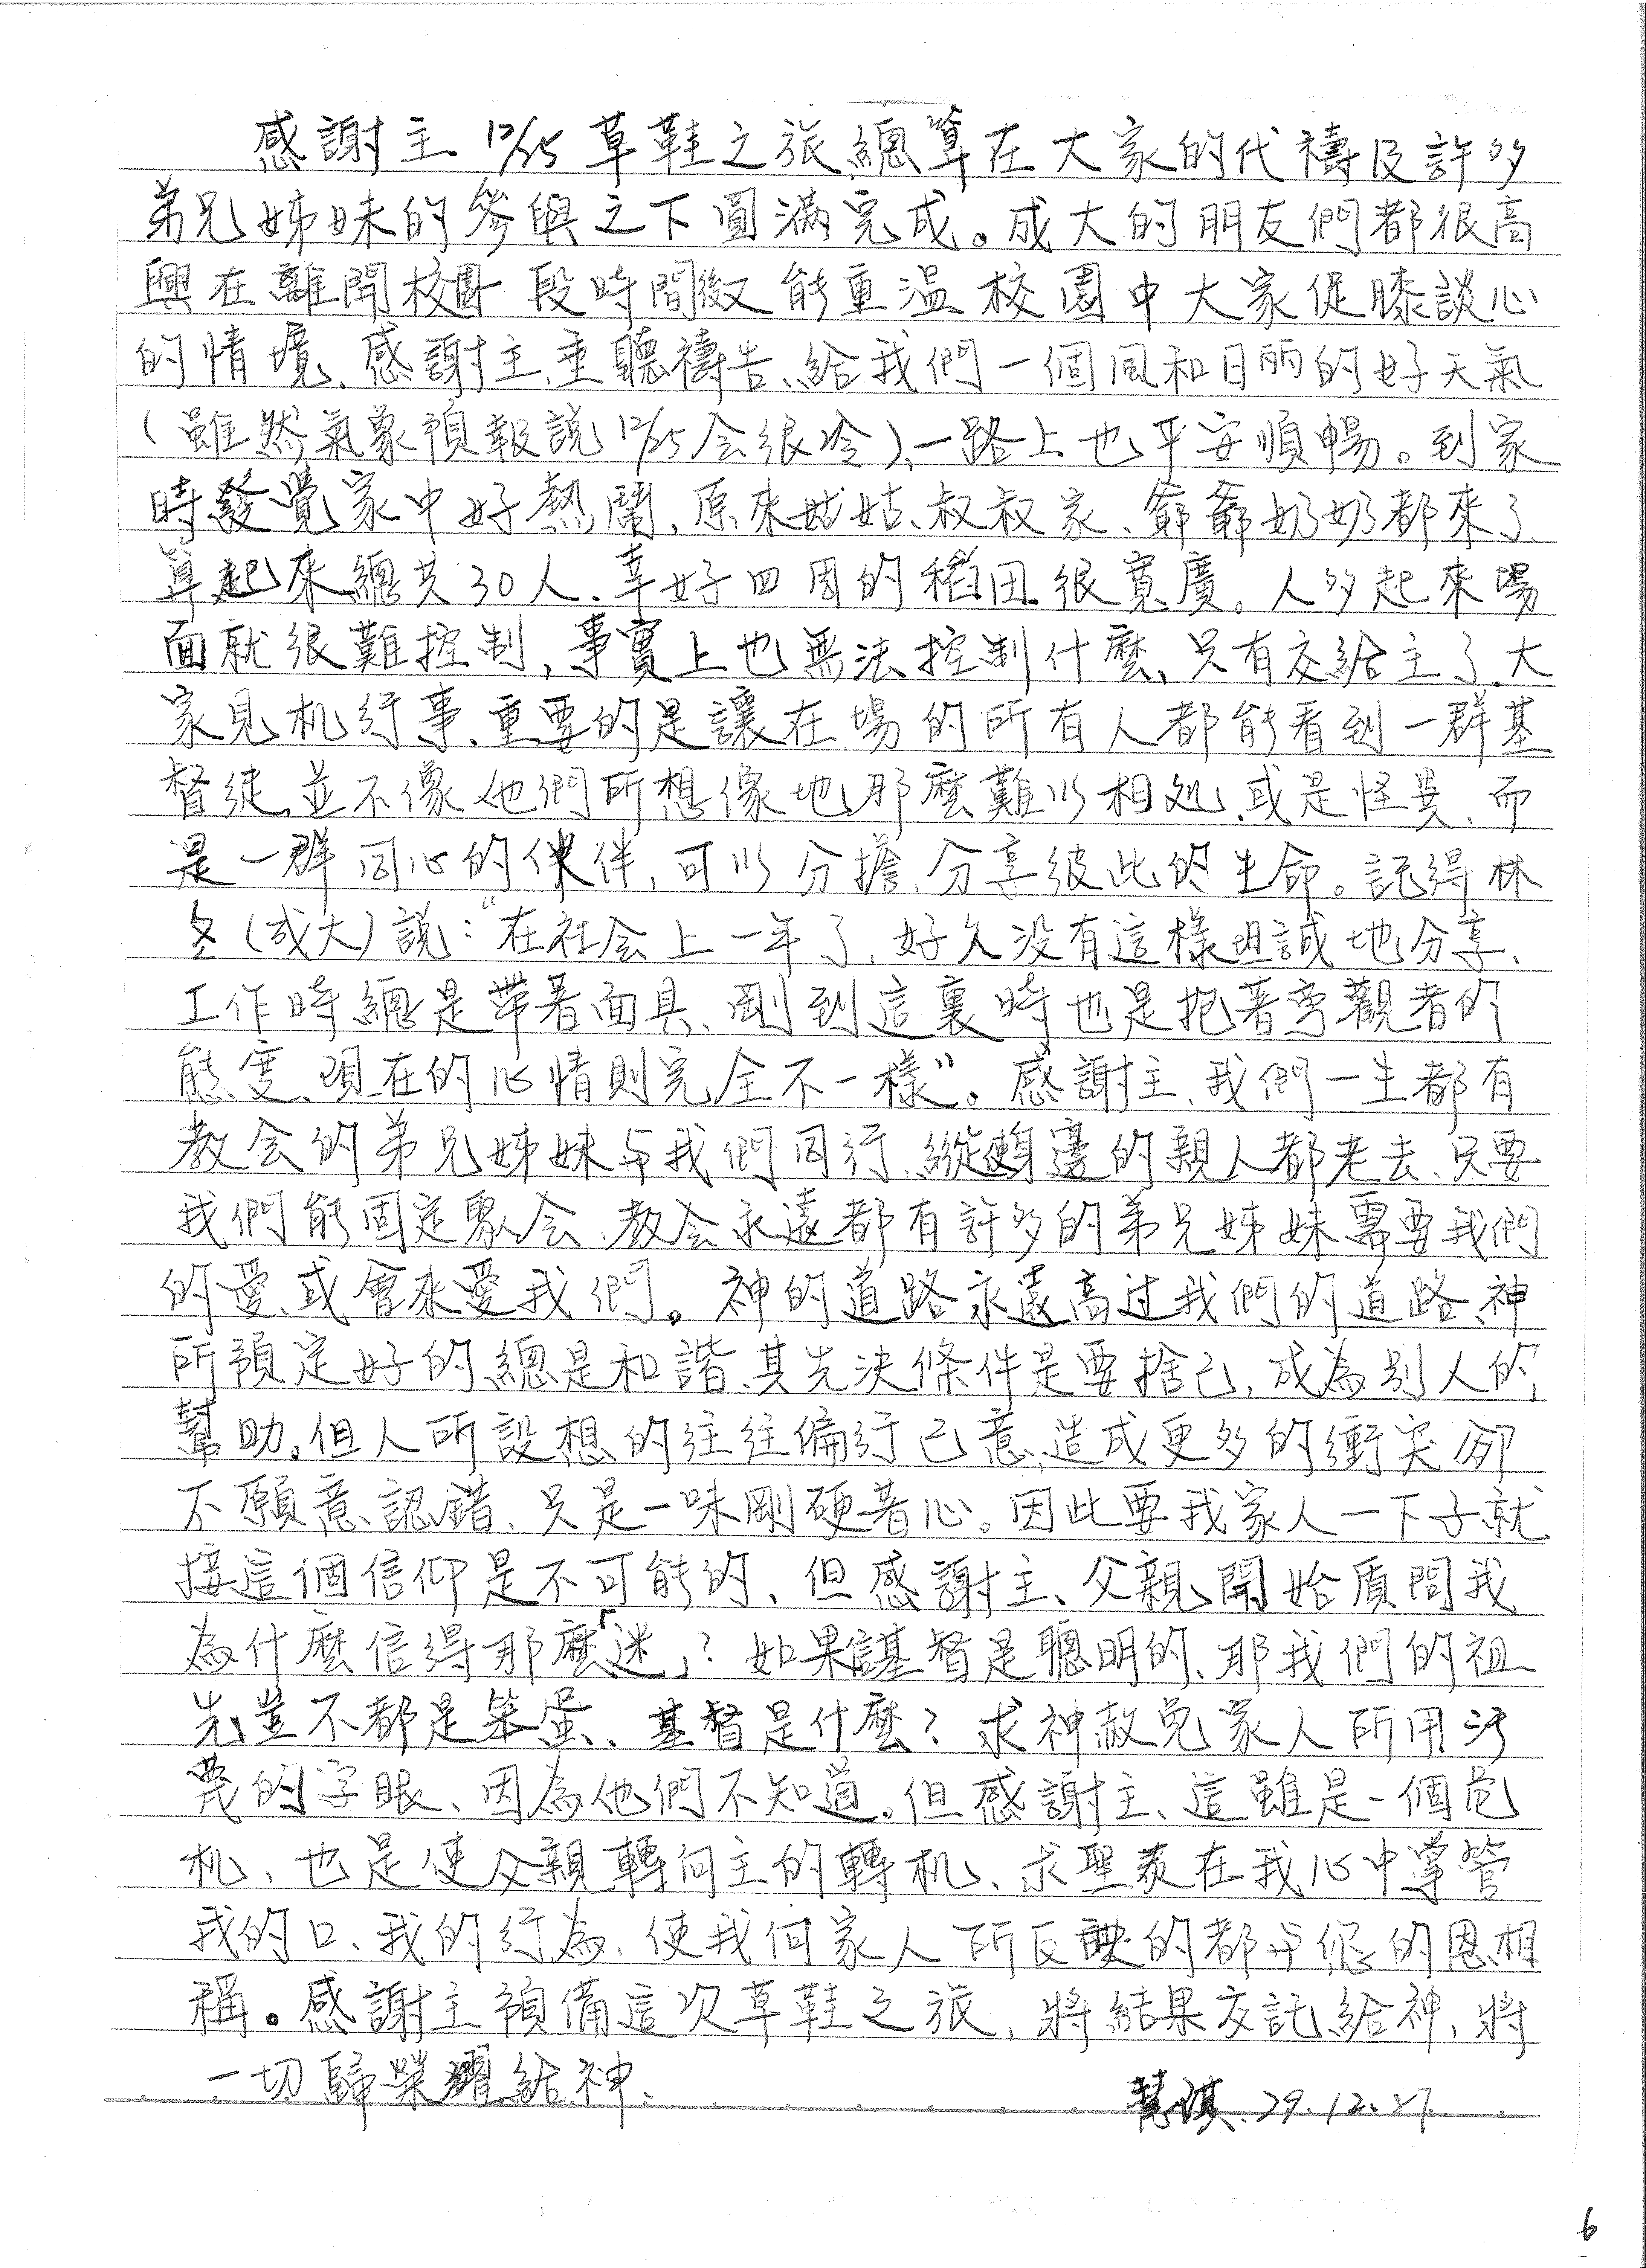 感謝主、12/25草鞋之旅總算在大家的代禱及許多
弟兄姊妹的參與之下圓滿完成。成大的朋友們都很高
興在離開校園一段時間後又能重溫校園中大家促膝談心
的情境、感謝主、垂聽禱告、給我們一個風和日丽的好天氣
(雖然氣象預報說12/25会很冷)、一路上也平安順暢。到家
時發覺家中好熱鬧,原來姑姑、叔叔家、爺爺奶奶都來了
算起來總共30人、幸好四周的稻田很寬廣。人多起來場
面就很難控制,事實上也無法控制什麼、只有交給主了、大
家見机行事、重要的是讓在場的所有人都能看到一群基
督徒、並不像他們所想像地那麼難以相処、或是怪異、而
是一群同心的伙伴,可以分擔、分享彼此的生命。記得林
冬(成大)說:“在社会上一年了、好久沒有這樣坦誠地分享、
工作時總是帶著面具、剛到這裏時也是抱著旁觀者的
態度、現在的心情則完全不一樣”。感謝主、我們一生都有
教会的弟兄姊妹与我們同行、縱使身邊的親人都老去、只要
我們能固定聚会、教会永遠都有許多的弟兄姊妹需要我們
的愛、或會來愛我們。神的道路永遠高过我們的道路、神
所預定好的總是和諧、其先決條件是要捨己,成為別人的
幫助。但人所設想的往往偏行己意、造成更多的衝突卻
不願意認錯、只是一味剛硬著心。因此要我家人一下子就
接這個信仰是不可能的、但感謝主、父親開始質問我
為什麼信得那麼「迷」?如果信基督是聰明的、那我們的祖
先豈不都是笨蛋、基督是什麼?求神赦免家人所用污
蔑的字眼、因為他們不知道。但感謝主、這雖是一個危
机、也是使父親轉向主的轉机、求聖灵在我心中掌管
我的口、我的行為、使我向家人所反映的都与您的恩相
稱。感謝主預備這次草鞋之旅,將結果交託給神,將
一切歸榮耀給神、
慧琪、79.12.27
6